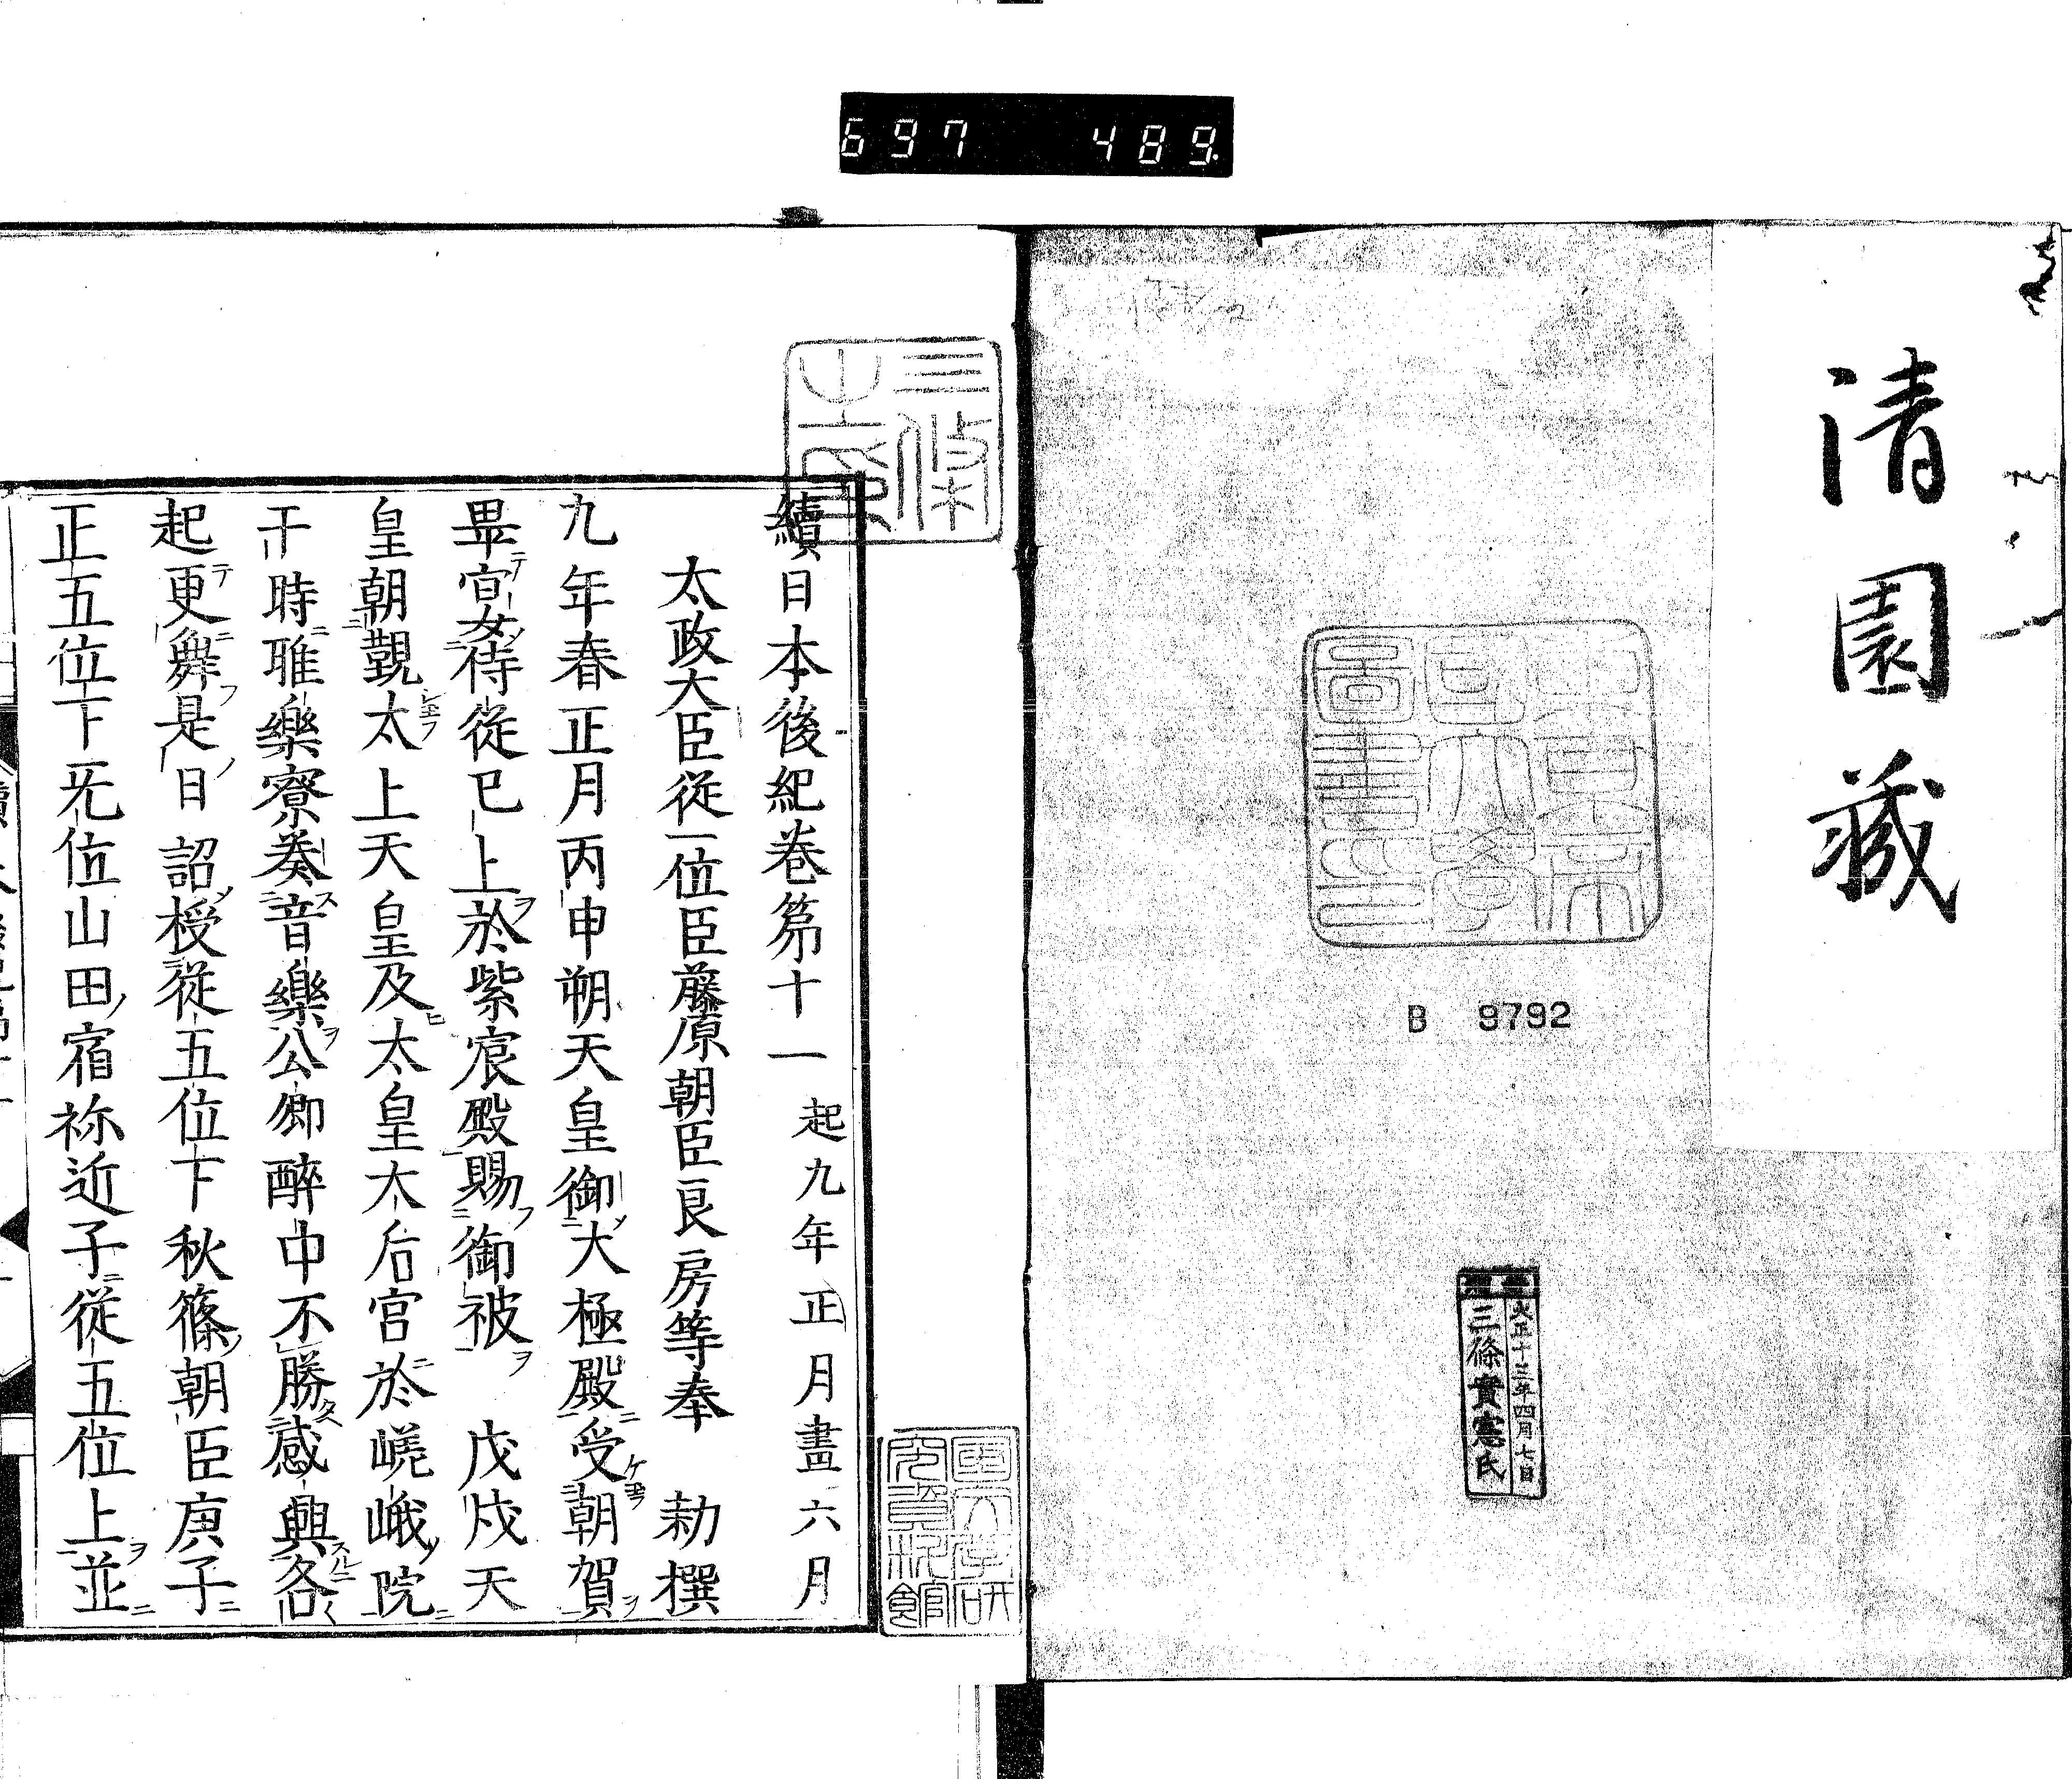 697 489
清園藏
B 9792
大正十三年四月七日
三條實憲氏
三條
續日本後紀卷第十一 起九年正月盡六月
太政大臣從一位臣藤原朝臣良房等奉 勅撰
九年春正月丙申朔天皇御大極殿受朝賀
畢宣侍從已上於紫宸殿賜御被 戊戌天
皇朝覲太上天皇及太皇太后宮於嵯峨院
于時雅樂寮奏音樂公卿醉中不勝感興各
起更舞是日 詔授從五位下秋篠朝臣庚子
正五位下无位山田宿祢近子從五位上並